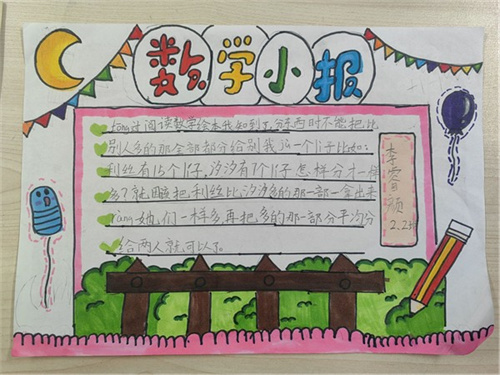 数学小报
tong过阅读数学绘本我知到了,分东西时不能把比
别人多的那全部部分给别我ju一个li子比如:
利丝有15个li子,汐汐有7个li子怎样分才一样
多?就酸把利丝比汐汐多的那一部一拿出来
rang她们一样多再把多的那一部分平均分
给两人就可以了。
李雩颐
2.2班